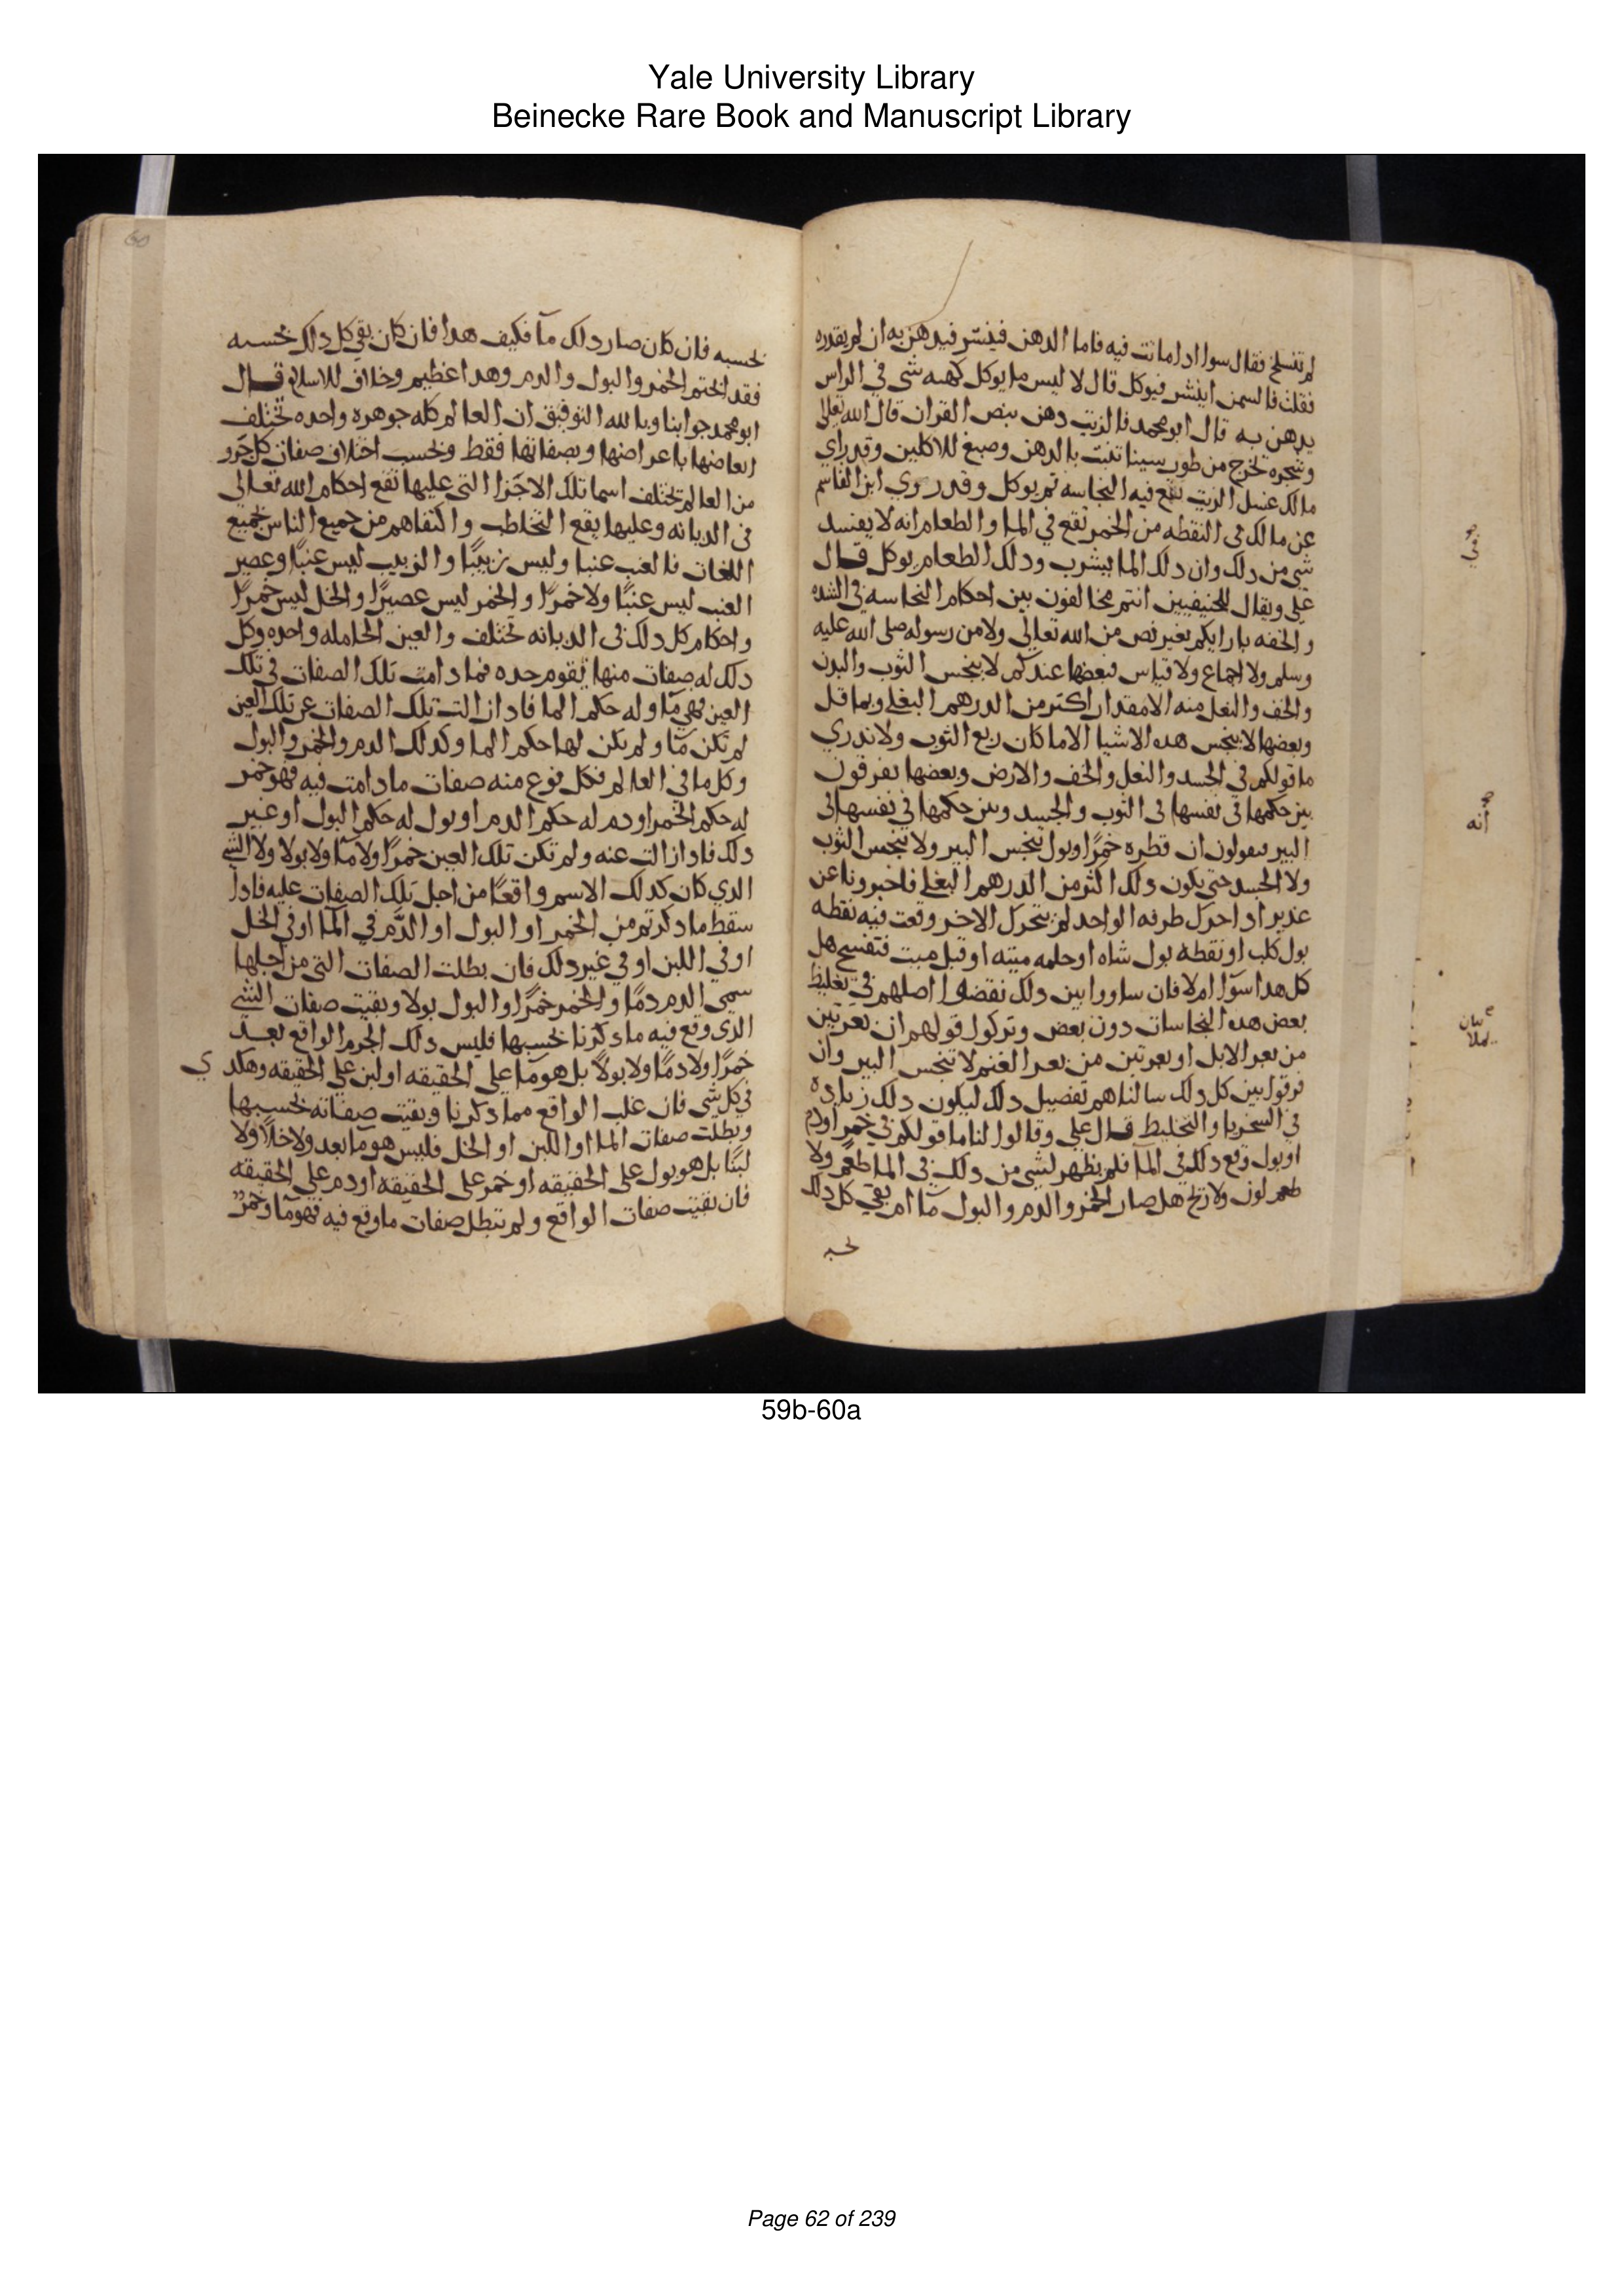 Yale University Library
Beinecke Rare Book and Manuscript Library
لم تنسلخ فقال سوا ادا ماتت فيه فاما الدهن فينش فيدهن به ان لم يقدره
فقلت فالسمن اينش فيوكل قال لا ليس ما يوكل كهيه شي في الراس
يدهن به قال ابو محمد فالزيت دهن بنص القران قال الله تعالى
وشجره تخرج من طور سينا تنبت بالدهن وصبغ للاكلين وقد راي
مالك غسل الزيت تقع فيه النجاسه ثم يوكل وقد روي ابن القاسم
عن مالك في النقطه من الخمر تقع في الما والطعام انه لا يفسد
شي من دلك وان دلك الما يشرب ودلك الطعام يوكل قال
علي ويقال للحنيفيين انتم تخالفون بين احكام النجاسه في الشده
والخفه بارايكم بغير نص من الله تعالى ولا من رسوله صلى الله عليه
وسلم ولا اجماع ولا قياس فبعضها عندكم لا ينجس الثوب والبدن
والخف والنعل منه الا مقدار اكثر من الدرهم البغلي وبما قل
وبعضها لا ينجس هده الاشيا الا ما كان ربع الثوب ولا ندري
ما قولكم في الجسد والنعل والخف والارض وبعضها تفرقون
بين حكمها في نفسها في الثوب والجسد وبين حكمها في نفسها في
البير فتقولون ان قطره خمرًا او بول ينجس البير ولا ينجس الثوب
ولا الجسد حتى يكون دلك اكثر من الدرهم البغلي فاخبرونا عن
غدير ادا حرك طرفه الواحد لم يتحرك الاخر وقعت فيه نقطه
بول كلب او نقطه بول شاه او حلمه ميته او فيل ميت فتفسخ هل
كل هدا سوآ ام لا فان ساووا بين دلك نقضوا اصلهم في تغليظ
بعض هده النجاسات دون بعض وتركوا قولهم ان بعرتين
من بعر الابل او بعرتين من بعر الغنم لا تنجس البير وان
فرقوا بين كل دلك سالناهم تفصيل دلك ليكون دلك زياده
في السخريا والتخليط قال علي وقالوا لنا ما قولكم في خمر او دم
او بول وقع دلك في المآ فلم يظهر لشي من دلك في الما طعم ولا
طعم لون ولا ريح هل صار الخمر والدم والبول مآ ام بقي كل دلك
انه
بحسبه فان كان صار دلك مآ فكيف هدا فان كان بقي كل دلك بحسبه
فقد ابحتم الخمر والبول والدم وهدا عظيم وخلاف للاسلام قال
ابو محمد جوابنا وبالله التوفيق ان العالم كله جوهره واحده تختلف
ابعاضها باعراضها وبصفاتها فقط وبحسب اختلاف صفات كل جزو
من العالم تختلف اسما تلك الاجزا التي عليها تقع احكام الله تعالى
في الديانه وعليها يقع التخاطب والتفاهم من جميع الناس بجميع
اللغات فالعنب عنبا وليس زبيبًا والزبيب ليس عنبًا وعصير
العنب ليس عنبًا ولا خمرًا والخمر ليس عصيرًا والخل ليس خمرًا
واحكام كل دلك في الديانه تختلف والعين الحامله واحده وكل
دلك له صفات منها يقوم حده فما دامت تلك الصفات في تلك
العين فهي مآ وله حكم الما فادا زالت تلك الصفات عن تلك العين
لم تكن مآ ولم يكن لها حكم الما وكدلك الدم والخمر والبول
وكل ما في العالم فكل نوع منه صفات ما دامت فيه فهو خمر
له حكم الخمر او دم له حكم الدم او بول له حكم البول او غير
دلك فادا زالت عنه ولم تكن تلك العين خمرًا ولا مآ ولا بولا ولا الشي
الدي كان كدلك الاسم واقعًا من اجل تلك الصفات عليه فادا
سقط ما دكرتم من الخمر او البول او الدم في المآ او في الخل
او في اللبن او في غير دلك فان بطلت الصفات التي من اجلها
سمي الدم دمًا والخمر خمرًا والبول بولا وبقيت صفات الشي
الدي وقع فيه ما دكرنا بحسبها فليس دلك الجرم الواقع بعد
خمرًا ولا دمًا ولا بولًا بل هو ما على الحقيقه او لبن على الحقيقه وهكد ي
في كل شي فان غلب الواقع مما دكرنا وبقيت صفاته بحسبها
وبطلت صفات الما او اللبن او الخل فليس هو مآ بعد ولا خلًا ولا
لبنًا بل هو بول على الحقيقه او خمر على الحقيقه او دم على الحقيقه
فان بقيت صفات الواقع ولم تبطل صفات ما وقع فيه فهو مآ وخمرٌ
60
59b-60a
Page 62 of 239